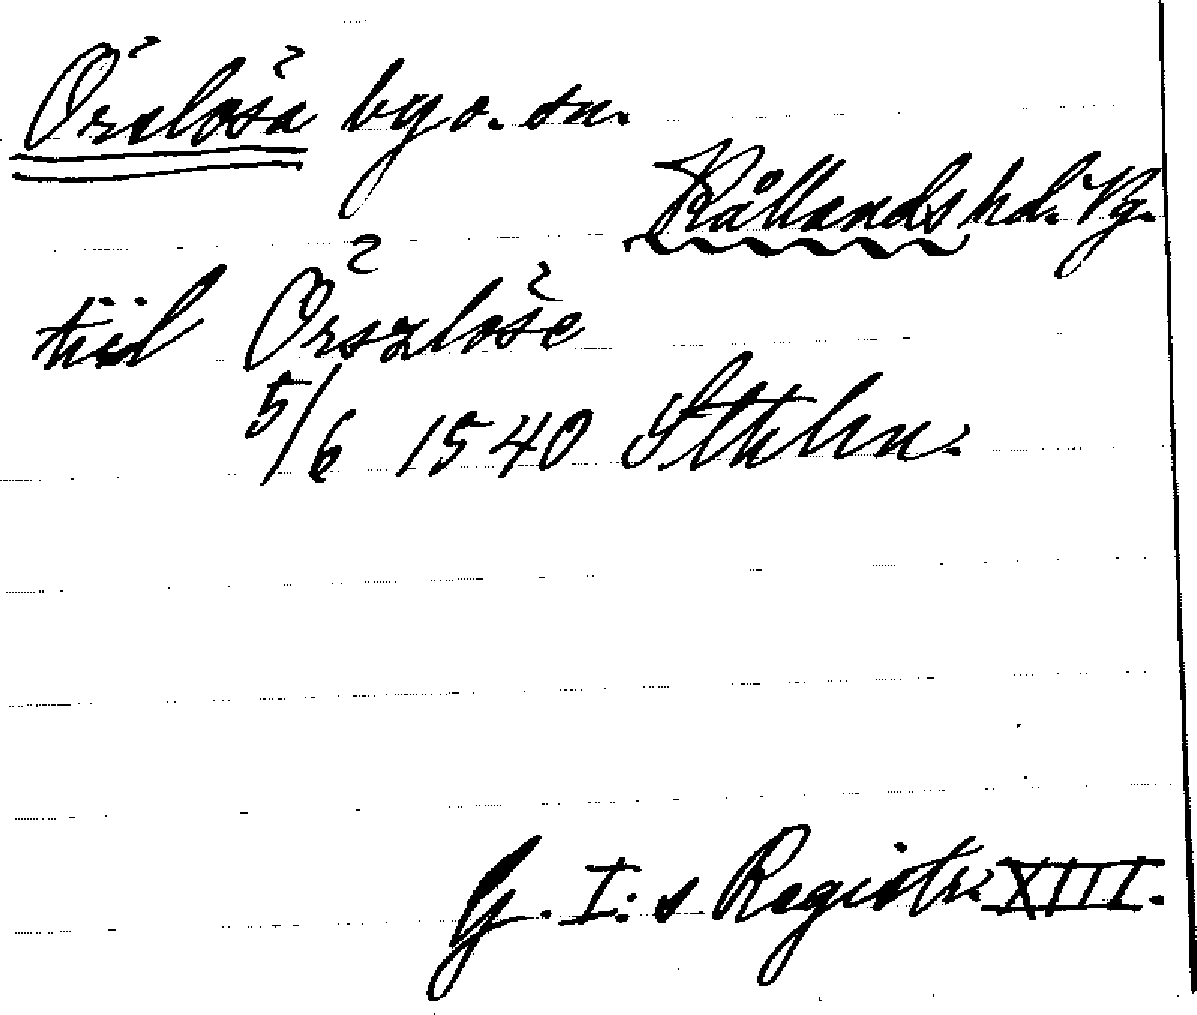 Örslösa by o. sn.
Kållands hd. Vg.
tiil Örszlöse
5/6 1540 Sthlm.
G. I:s Registr. XIII.